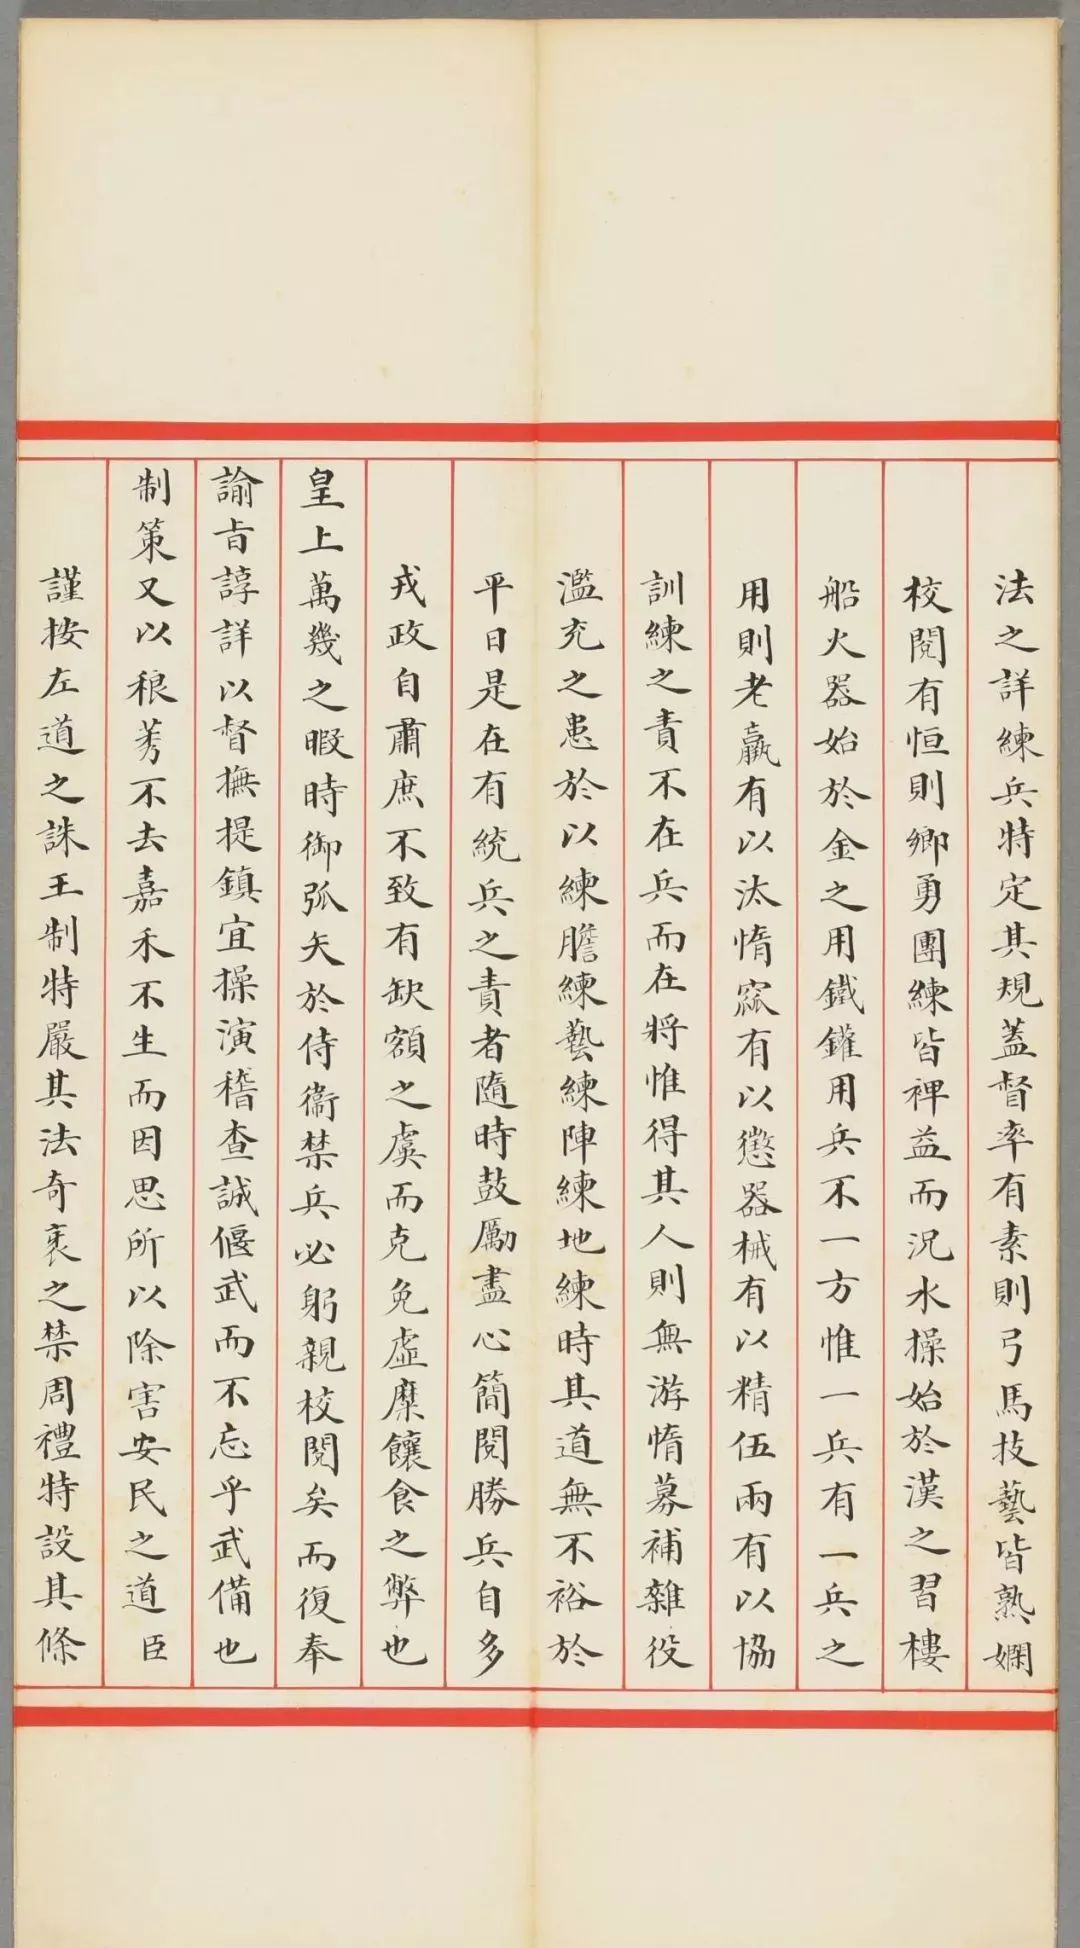 法之詳練兵特定其規蓋督率有素則弓馬技藝皆熟嫻
校閱有恒則鄉勇團練皆裨益而況水操始於漢之習樓
船火器始於金之用鐵鑵用兵不一方惟一兵有一兵之
用則老羸有以汰惰窳有以懲器械有以精伍兩有以協
訓練之責不在兵而在將惟得其人則無游惰募補雜役
濫充之患於以練膽練藝練陣練地練時其道無不裕於
平日是在有統兵之責者隨時鼓勵盡心簡閱勝兵自多
戎政自肅庶不致有缺額之虞而克免虛糜饟食之弊也
皇上萬幾之暇時御弧矢於侍衞禁兵必躬親校閱矣而復奉
諭旨諄詳以督撫提鎮宜操演稽查誠偃武而不忘乎武備也
制策又以稂莠不去嘉禾不生而因思所以除害安民之道臣
謹按左道之誅王制特嚴其法奇衺之禁周禮特設其條